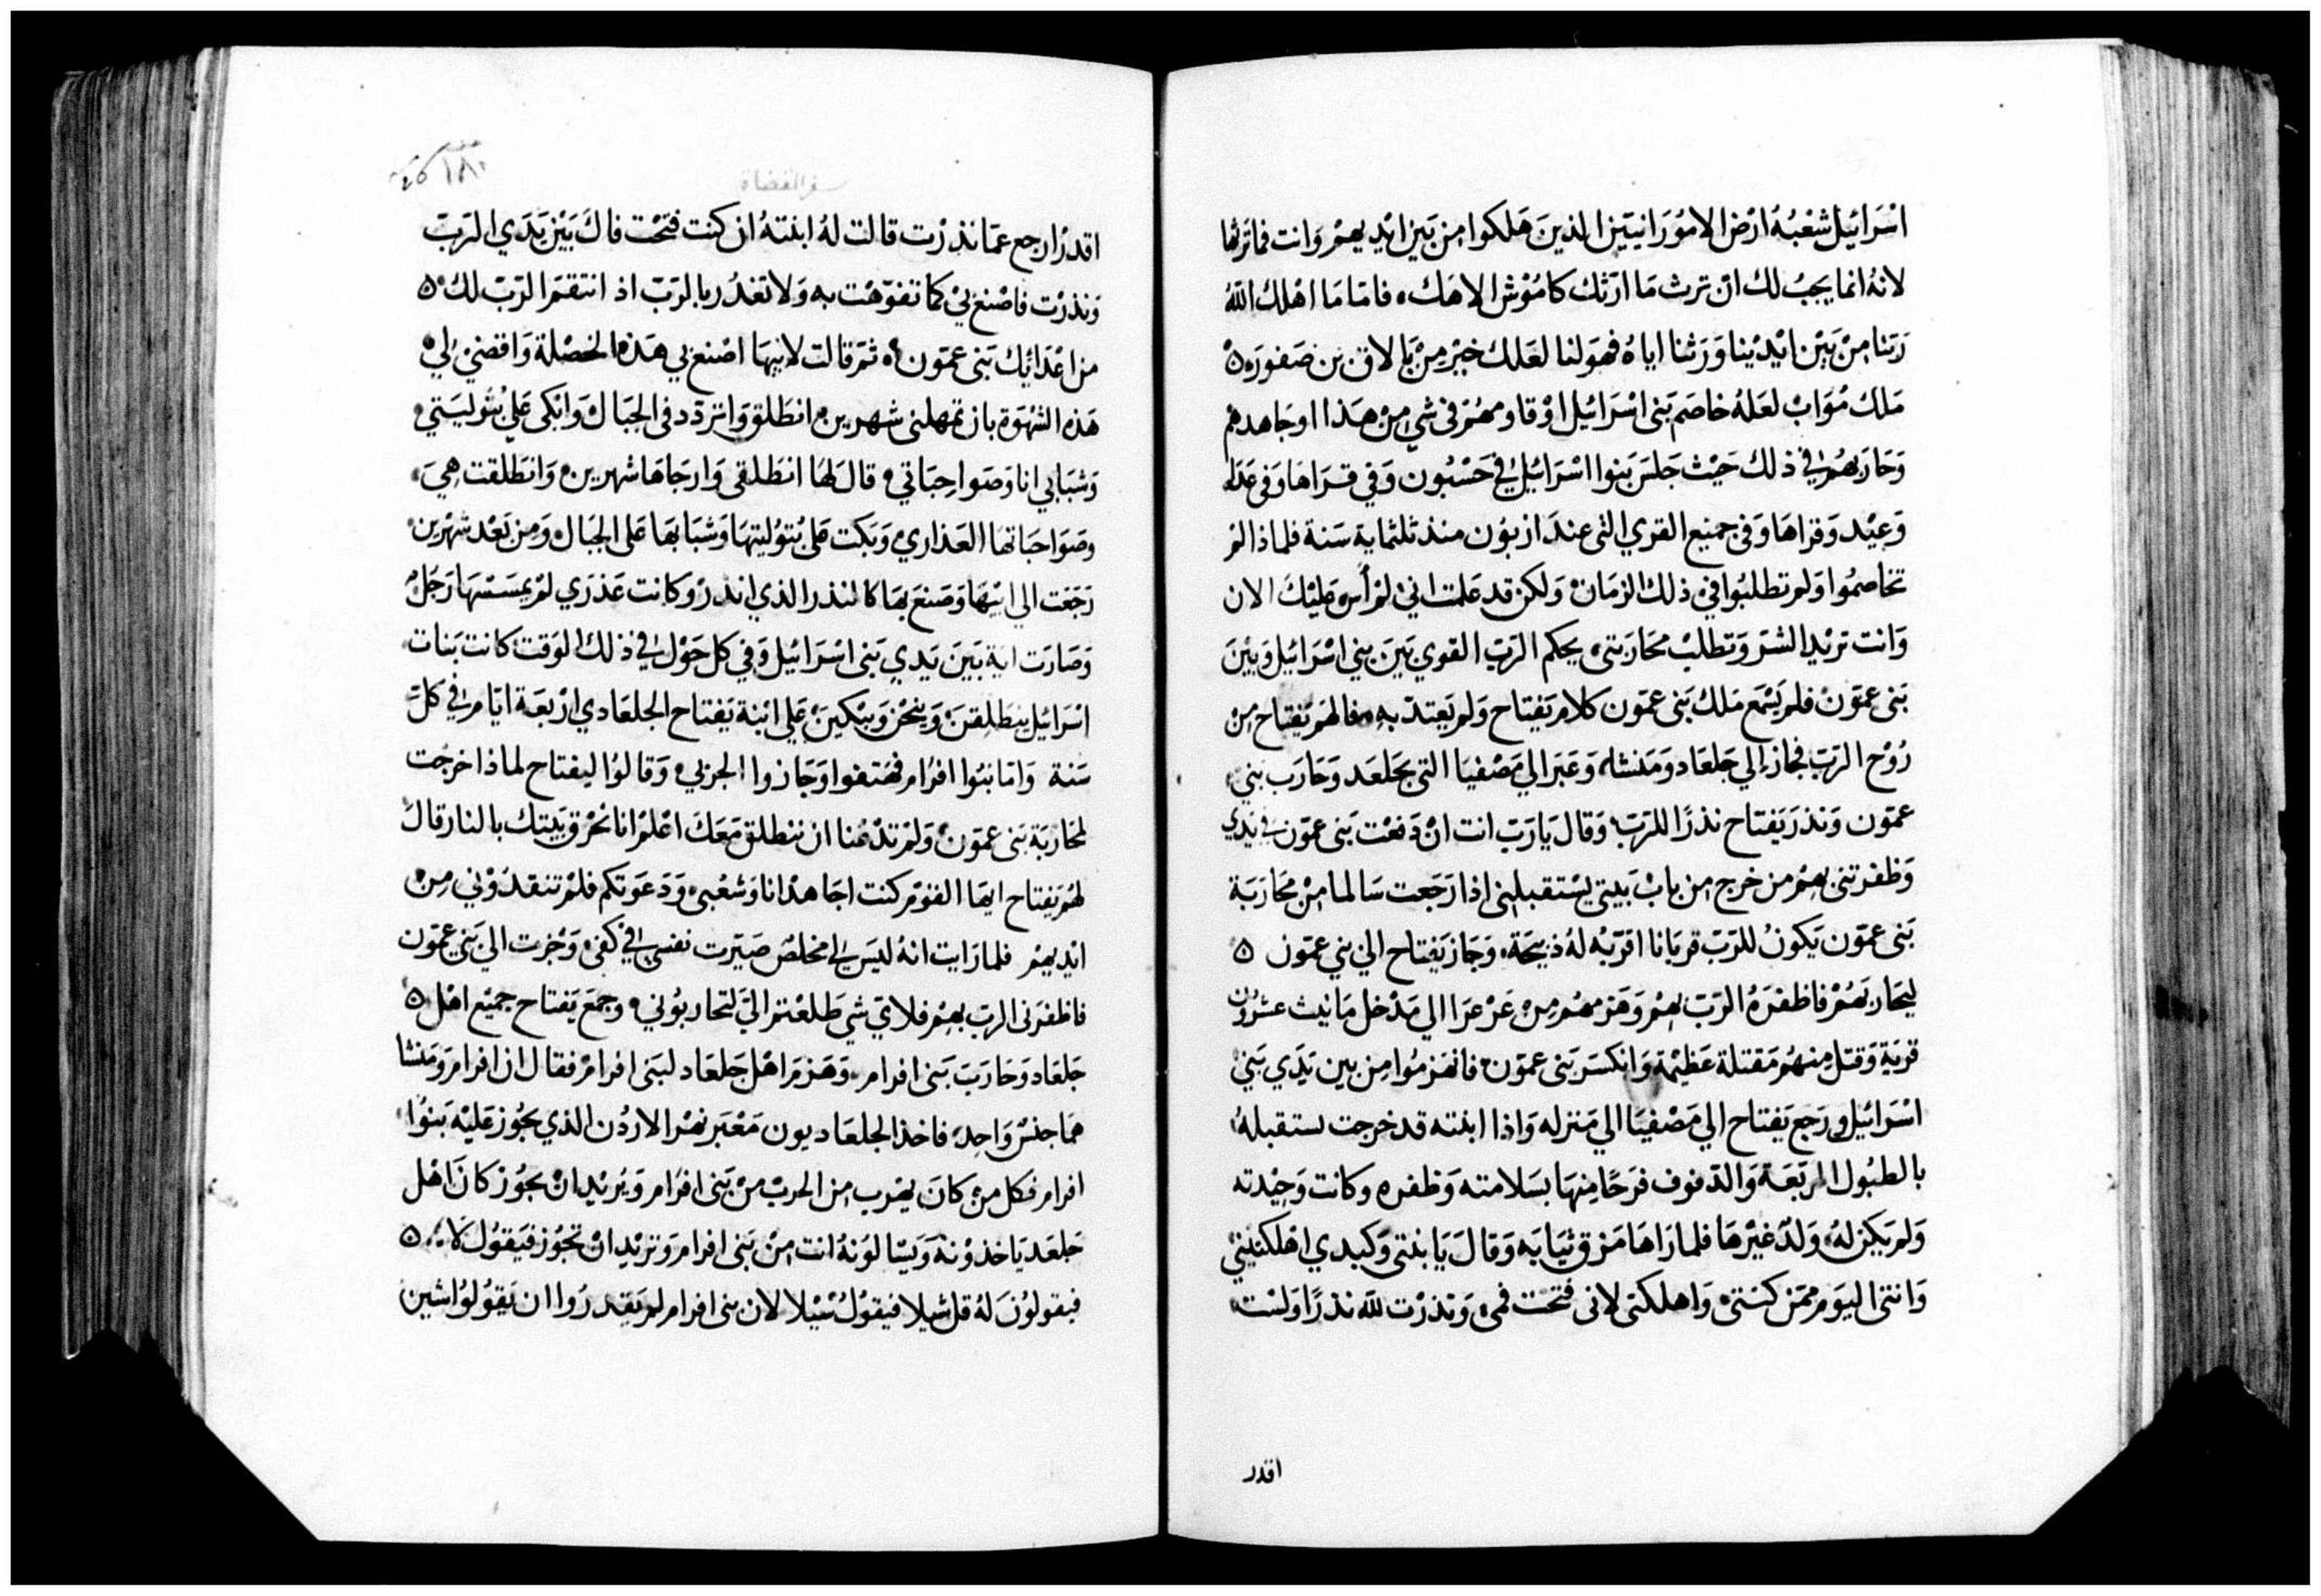 اسْرَائيل شعْبُهُ ارْض الامُورَانيّين الذينَ هَلكوا من بَين ايْديهمْ وَانت فما ترثها
لانهُ انما يجبُ لك ان ترث مَا ارّثك كامُوْش الاهَك، فامّا مَا اهْلك اللّهُ
رَبنا مِنْ بَيْن ايْديْنا وَرَثنا اياهُ فهوَ لنا لعَلك خيْر مِنْ بَالاق بن صَفورَه
مَلك مُوَابْ لعَلهُ خاصَم بَنى اسْرَائيل اوْ قاومهُمْ فى شي مِنْ هَذا اوجَاهدهم
وَحَارَبهُمْ في ذلك حَيْث جَلسَ بَنوا اسْرَائيل في حَسْبُون وَفي قرَاهَا وَفى عَدَله
وَعِيْد وَقراهَا وَفى جميع القري التى عند ازبُون منذ ثلثماية سَنة فلماذا لمْ
تخاصمُوا وَلم تطلبُوا في ذلك الزمَان وَلكن قد عَلمت اني لمْ أس عَليْك الان
وَانت ترِيْد الشرّ وَتطلبْ محَارَبتى، يحكم الرَبّ القوي بَين بني اسْرَائيل وَبَيْنَ
بَنى عمّونْ فلم يَسْمَع مَلك بَنى عمّون كلام يَفتاح وَلم يَعتدّ به، فالهَم يَفتاح مِنْ
رُوْح الرَبّ فجَاز إلي جَلعَاد وَمَنشا، وَعَبَر الي مَصْفيَا التى بجَلعَد وَحَارَب بَني
عمّون وَنذرَ يَفتاح نذرًا للرَبّ وَقال يَا رَبّ انت انْ دَفعْت بَنى عمّون في يَدي
وَظفرتني بهمْ من خرج من بابْ بَيتي يسْتقبلني اذا رَجَعت سَالما مِنْ محَارَبَة
بَنى عمّون يَكونُ للرَبّ قربَانا اقرّبُه لهُ ذبيحَة، وَجَاز يَفتاح الي بني عمّون
ليحَاربَهُمْ فاظفرَهُ الرَبّ بهمْ وَهَزمهُم مِنْ عَرْعَرَا الي مَدْخل مَانيث عشرُون
قريَة وَقتل منهُم مَقتلة عَظيْمة وَانكسَرَ بَنى عمّون فانهَزمُوا مِن بين يَدَي بَني
اسْرَائيل وَرَجع يَفتاح الي مَصْفيَا الي مَنزله وَاذا ابنته قد خرجت تستقبلهُ
بالطبُول المرَبّعَة وَالدّفوف فرَحًا مِنهَا بسَلامته وَظفره وكانت وَحِيْدته
وَلم يَكن لهُ، وَلدٌ غيْرهَا فلما رَاهَا مَزق ثيَابَه وَقالَ يَا بنتى وَكبدي اهْلكتيْني
وَانتى اليوَم ممّن كسَتنى، وَاهلكتى لانى فتحْت فمى، وَنذرْت للّه نذرًا وَلسْت
اقدر
سفر القضاة
١٨٠
اقدرْ ارجع عمّا نذرْت قالت لهُ ابنتهُ ان كنت فتحْت فاكَ بَيْن يَدَي الرَبّ
وَنذرْت فاصْنع بيْ كما تفوّهْت به وَلا تغدُر بالرَبّ اذ انتقمَ الرَبّ لك
من اعْدَائِك بَنى عمّون، ثمّ قالت لابيهَا اصْنع بي هَذه الخصْلة وَاقضني الي
هَذه الشهْوَة بان تمهلنى شهرين انطَلق وَاترَدّد فى الجبَال وَابْكى عَلي بُتُوليَتي
وَشبَابي انا وَصَوَاحبَاتي، قال لهَا انطَلقى وَارجَاهَا شهرين وَانطَلقت هِيَ،
وصَوَاحبَاتهَا العَذاري، وَبَكت عَلى بُتوُليتهَا وَشبَابهَا عَلى الجبَال وَمِن بَعْد شهْرين
رَجَعَت الي ابيْهَا وَصَنعَ بهَا كالنذر الذي انذر وَكانت عَذرَي لمْ يمسَسْهَا رَجُل
وَصَارَت اية بَينَ يَدي بَنى اسْرَائيل وَفي كل حَوْل في ذلك الوَقت كانت بَنات
اسْرَائيل ينطَلِقنَ وَينحْن وَيَبْكينَ عَلي ابْنة يَفتاح الجلعَادي ارْبَعَة ايّام في كلّ
سَنة وَامّا بَنُوا افرَام فهُتفوا وَجَازوا الجربي، وَقالوُا ليفتاح لماذا خرجْت
لمحَاربَة بَنى عمّونْ وَلمْ تدْعُنا ان ننطلق مَعَكَ اعْلمْ انا نحْرق بَيتك بالنار قال
لهُم يَفتاح ايهَا القوْم كنت اجَاهدْ انا وَشعْبى، وَدَعَوتكم فلمْ تنقدُوْني مِنْ
ايْديهمْ فلما رَايت انهُ ليَس لي مخلصْ صَيّرت نفسي في كفى، وَجُزت الي بَني عمّون
فاظفرَنى الرَبّ بهمْ فلاي شي طَلعْتم اليّ لتحَاربُوني، وجمَع يَفتاح جميْع اهْل
جَلعَاد وَحَارَبَ بَنى افرام، وَهَزمَ اهْل جَلعَاد لبَنى افرامْ فقال ان افرام وَمَنشا
هَمَا جنسْ وَاحِد، فاخذ الجلعَاديون مَعْبَر نهْر الاردُن الذي يجُوز عَليْه بَنوُا
افرام فكل مِنْ كانَ يهرب من الحربْ منْ بَنى افرَام وَيُريْد انْ يجُوز كانَ اهْل
جَلعَد يَاخذوْنهُ وَيَسَالوَنهُ انت مِنْ بَنى افرام وَترِيْد انْ تجُوز فيَقوُل لا،
فيقولوُنَ لهُ قل شيلا فيقوْلُ سَيْلا لان بنى افرام لم يَقدرُوا ان يَقوُلوُا شين